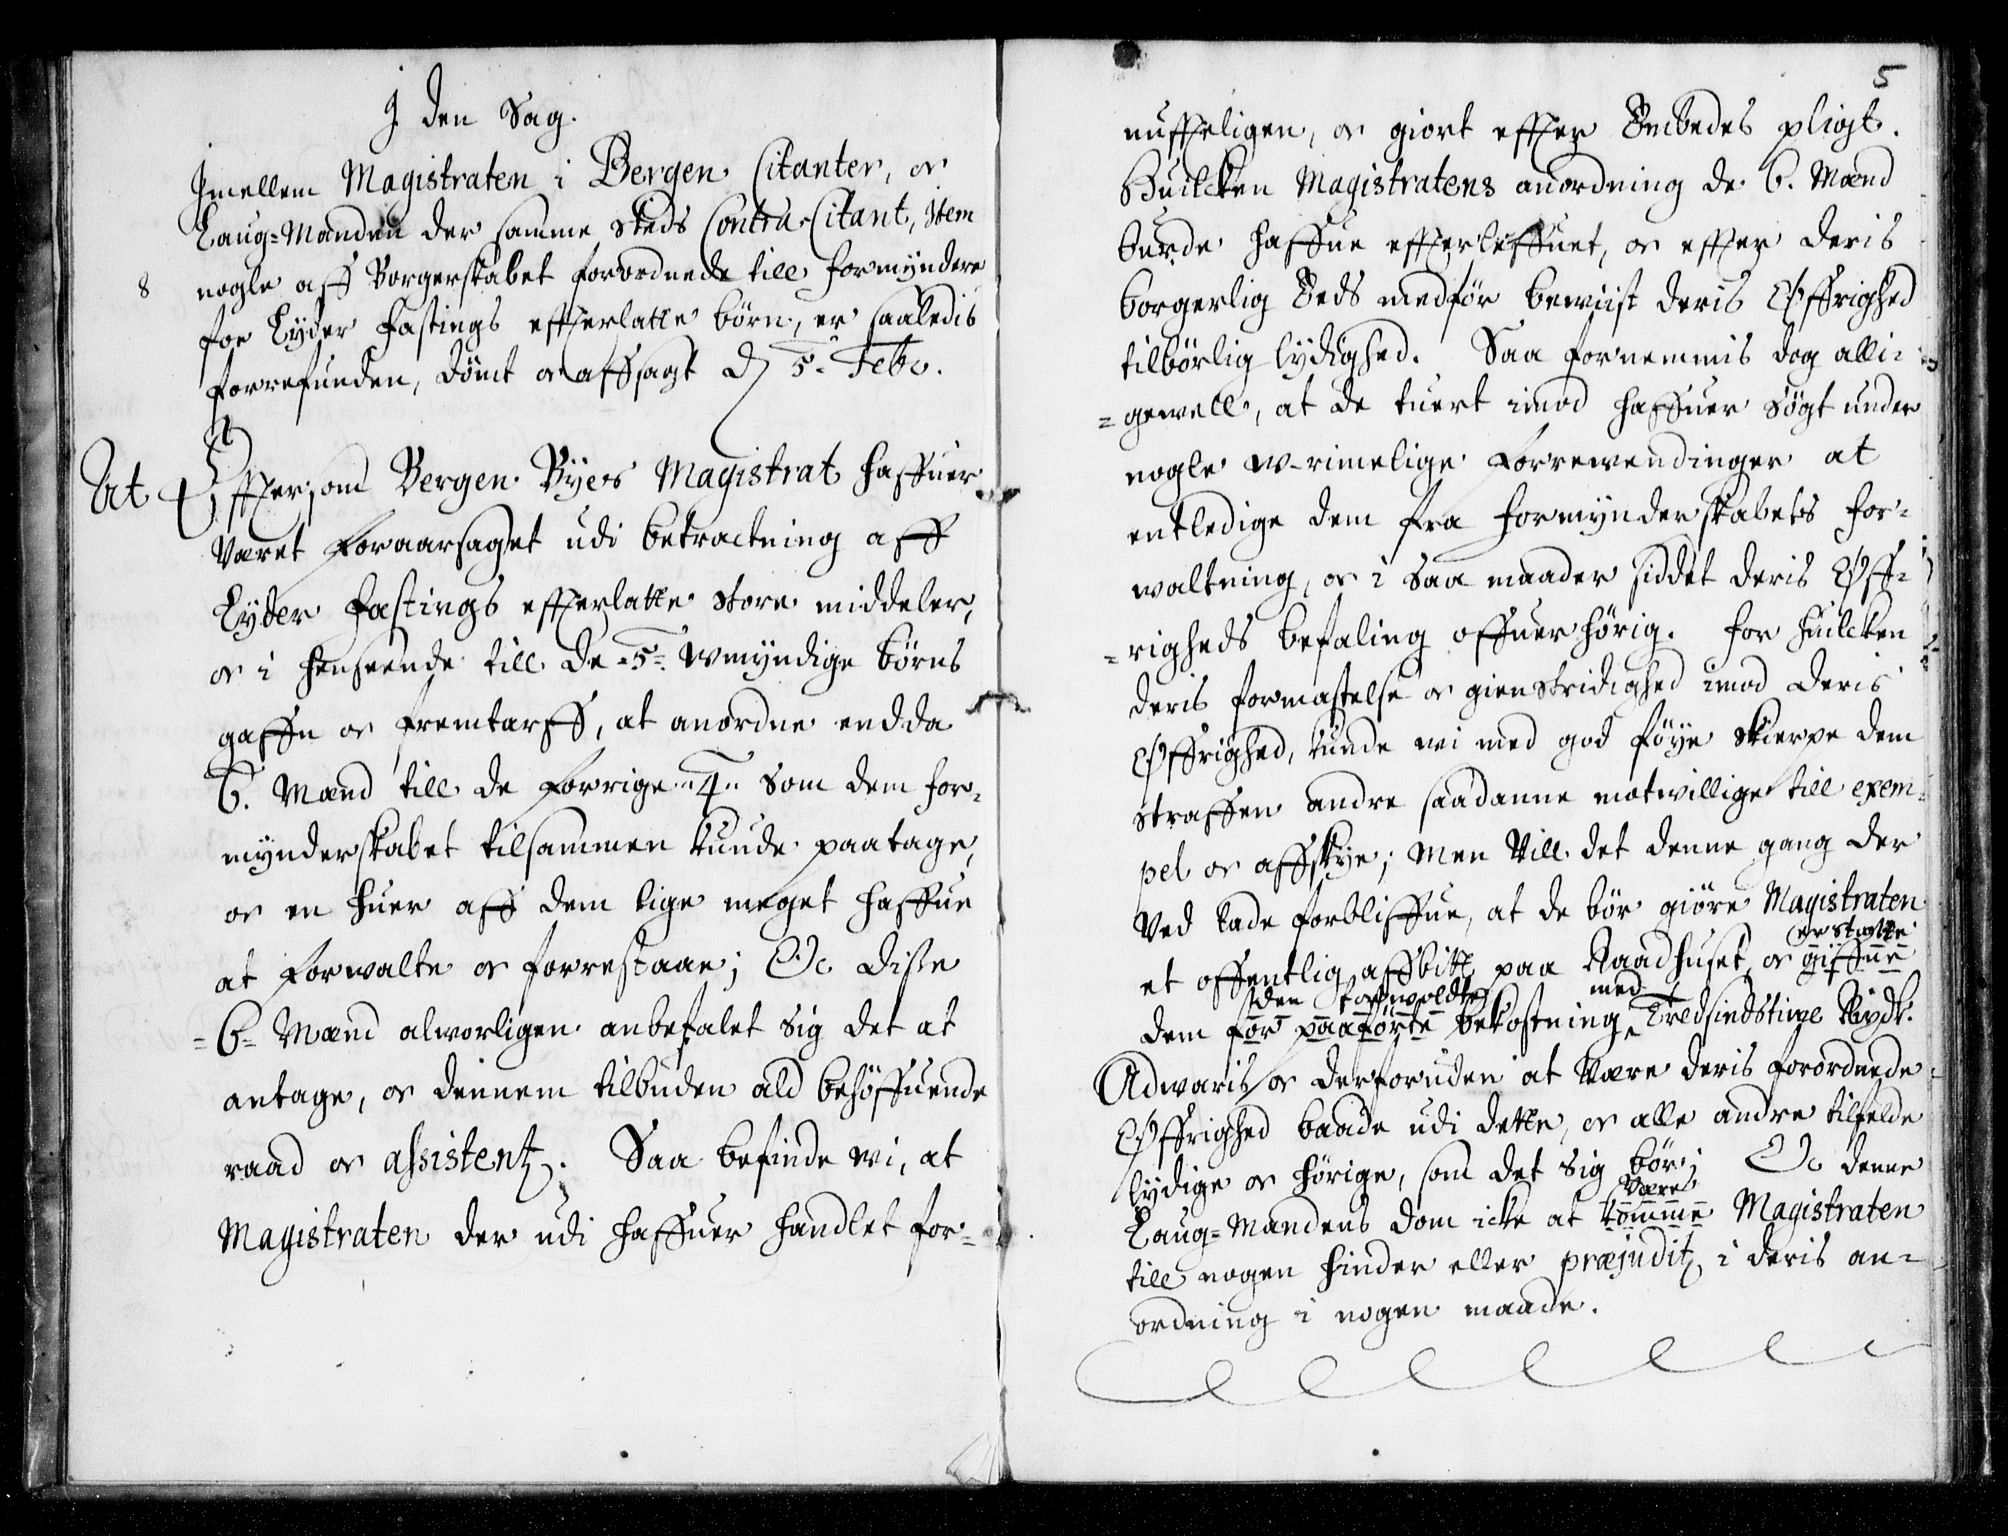 J den Sag.
Jmellem Magistraten i Bergen Citanter, oc
Laug=Manden der samme steds Contra-Citant, Item
8 nogle aff Borgerskabet forordnede till formyndere
for Lyder Fastings effterlatte börn, er saaledis
forrefunden, dömt oc affsagt d 5. Febr.
At Efftersom Bergen Byes Magistrat haffuer
Været foraarsaget udi betractning aff
Lyder Fastings effterlatte store middeler,
oc i henseende till de 5 wmyndige börns
gaffn oc fremtarff, at anordne endda
6. Mænd till de forrige 4 som dem for-
mynderskabet tilsammen kunde paatage,
oc en huer aff dem lige meget haffue
at forwalte oc forrestaae; Oc disse
6 Mænd alworligen anbefalet sig det at
antage, oc dennem tilbuden ald behöffuende
raad oc assistentz. Saa befinde wi, at
Magistraten der udi haffuer handlet for-
5
nufteligen, oc giort effter Embedes pligt.
Huilcken Magistratens anordning de 6. Mænd
burde haffue effterleffuet, oc effter deris
borgerlig Eeds medför bewiist deris Öffrighed
tilbörlig lydighed. Saa fornemmis dog alli-
=gewell, at de tuert imod haffuer sögt under
nogle w-rimelige forrewendinger at
entledige dem fra formynderskabets for-
waltning, oc i saa maader siddet deris Öff-
=righeds befaling offuerhörig. for huilcken
deris formastelse oc gienstridighed imod deris
Öffrighed, kunde wi med god föye skierpe dem
straffen andre saadanne motwillige till exem-
pel oc affskye; Men Vill det denne gang der
Ved lade forbliffue, at de bör giöre Magistraten
et offentlig affbitt paa Raadhuset, oc giffue
erstatte
dem for paaförte bekostning Tredsindstiwe Rixdr.
den forwoldte
med
Adwaris oc derforuden at Være deris forordnede
Öffrighed baade udi dette, oc alle andre tilfelde
lydige oc hörige, som det sig bör; Oc denne
Laug=Mandens dom icke at komme Magistraten
Være
till nogen hinder eller præjuditz i deris an-
ordning i nogen maade.